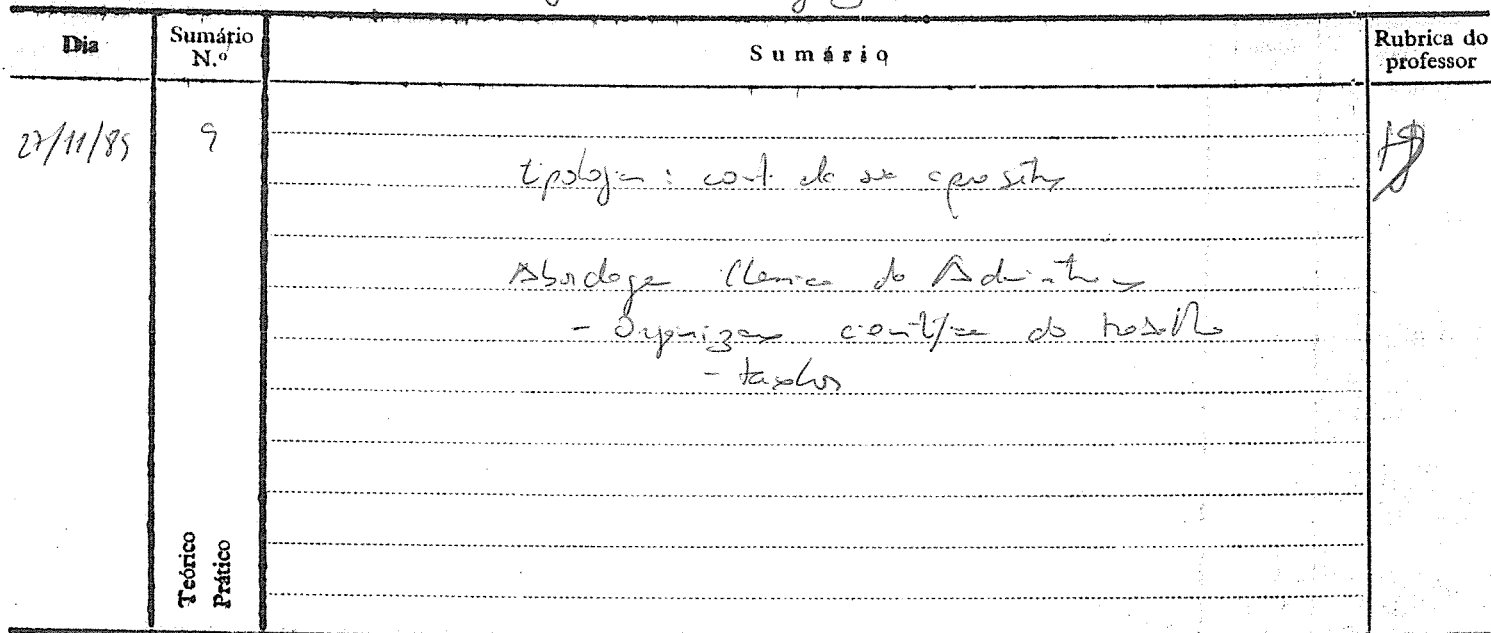 Dia
Sumário N.º
Sumário
Rubrica do professor
27/11/89
9
tipologia: cont. da sua
Abordagem Clássica da Administração
- Organização científica do trabalho
- taylor
Teórico
Prático